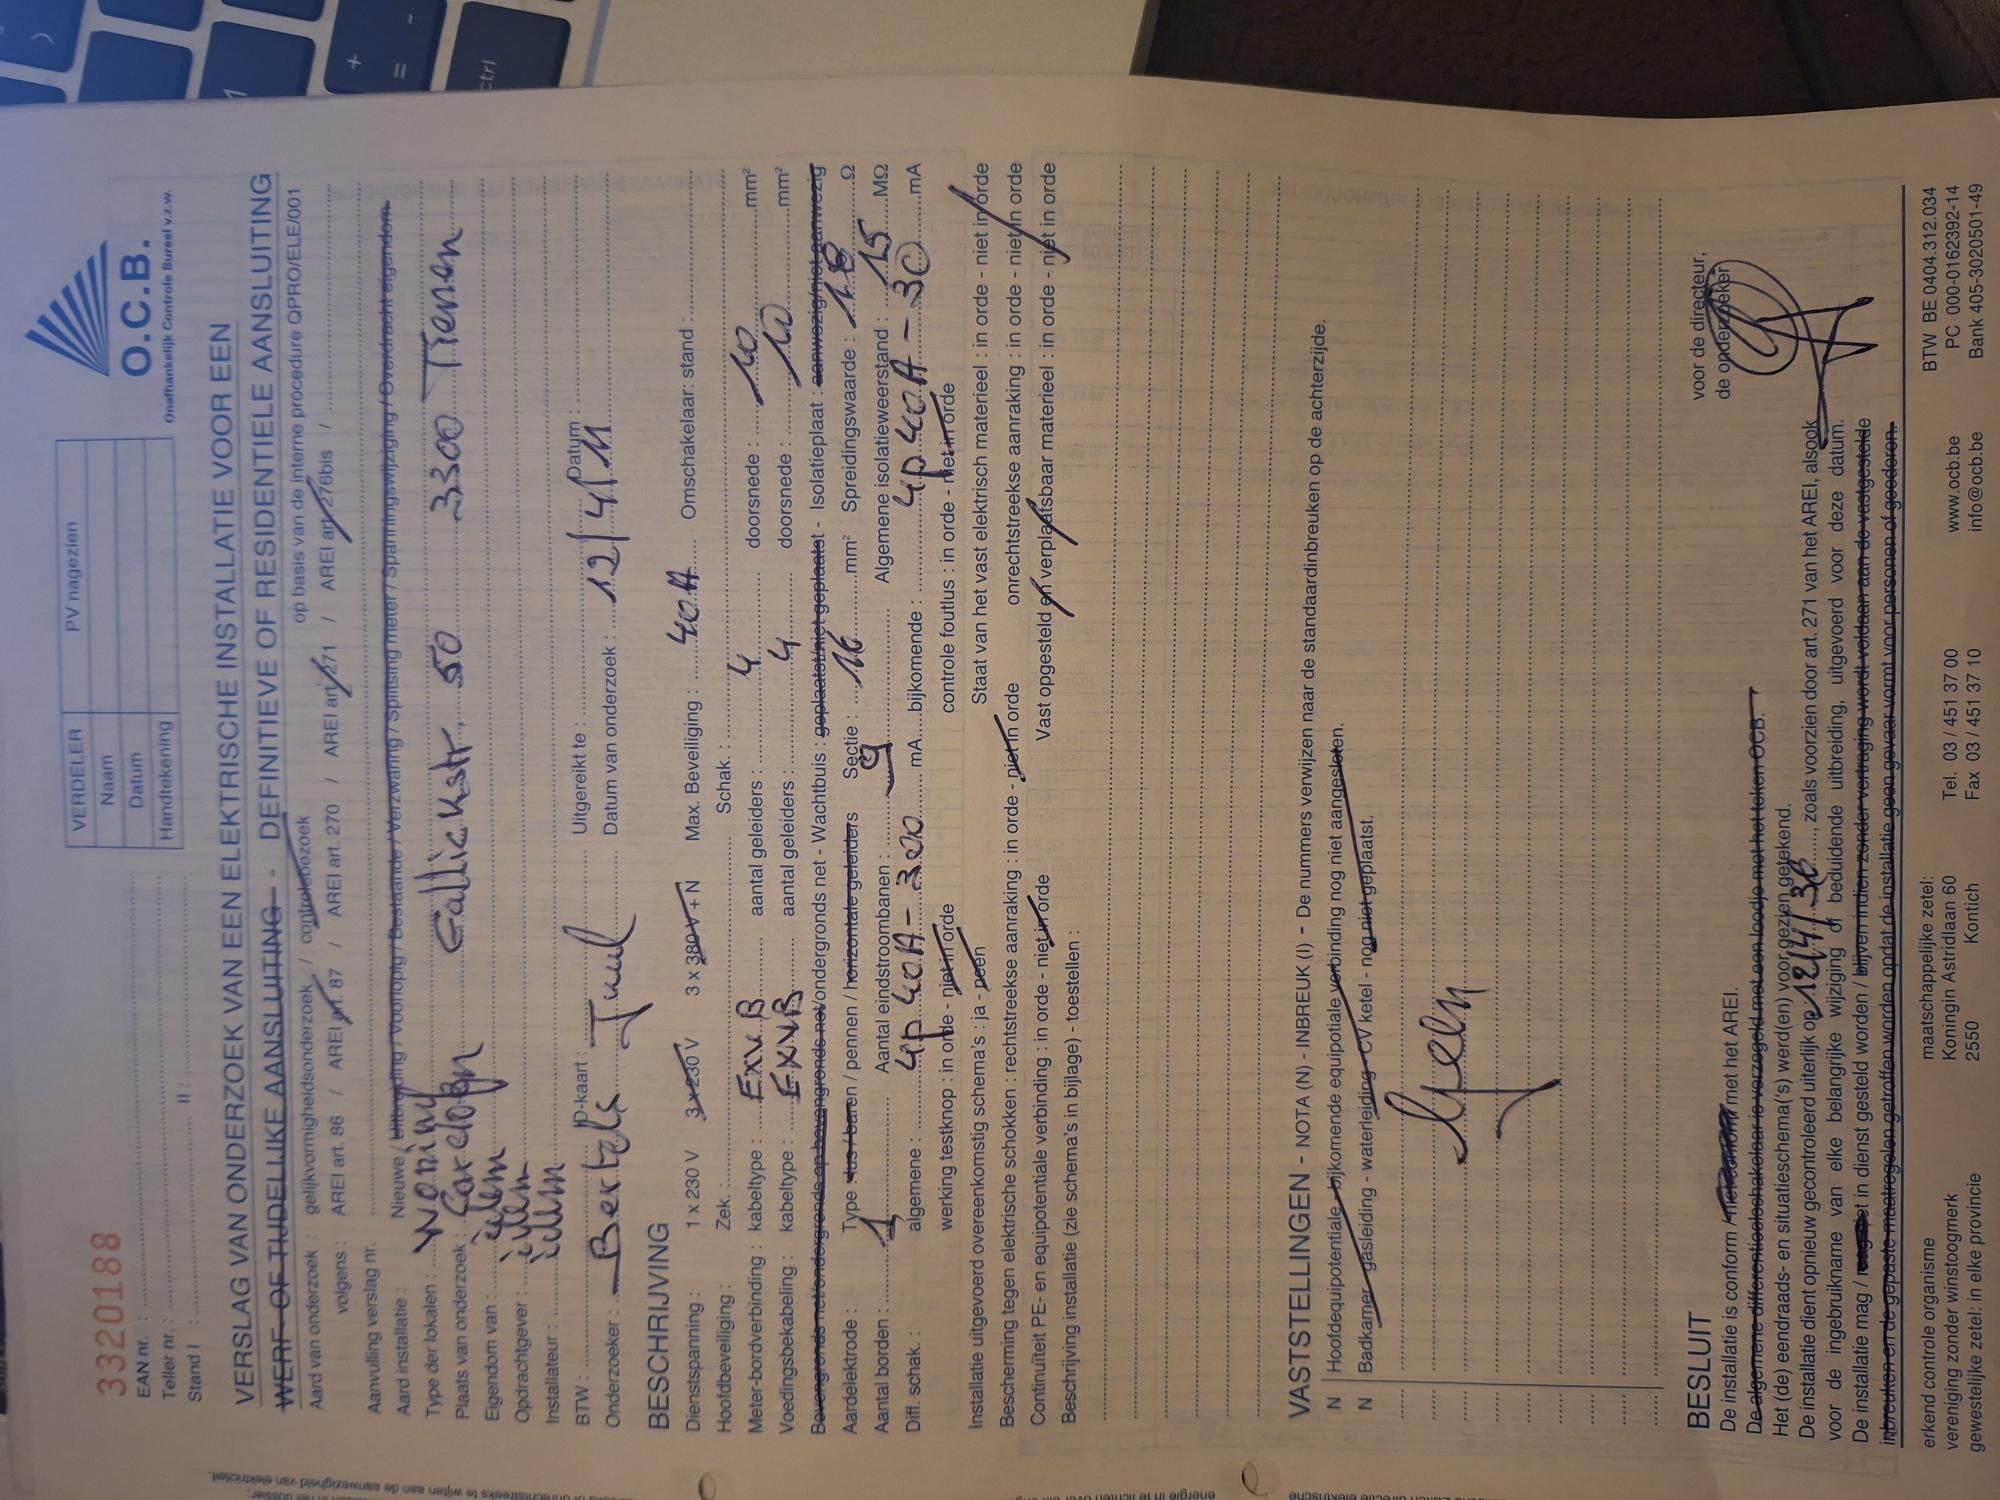 33201881
EAN nr. :
Teller nr. :
Stand I : II :
VERDELER PV nagezien
Nam
Datum
Handtekening
O.C.B.
Onafhankelijk Controle Bureel v.z.w.
VERSLAG VAN ONDERZOEK VAN EEN ELEKTRISCHE INSTALLATIE VOOR EEN
WERF- OF TIJDELIJKE AANSLUITING - DEFINITIEVE OF RESIDENTIELE AANSLUITING
Aard van onderzoek : gelijkvormigheidsonderzoek / controlebezoek op basis van de interne procedure QPRO/ELE/001
volgens : AREI art. 86 / AREI art. 87 / AREI art. 270 / AREI art. 271 / AREI art. 276bis /
Aanvulling verslag nr.
Aard installatie : Nieuwe / Uitbreiding / Voorlopig / Bestaande / Verzwaring / Splitsing meter / Spanningswijziging / Overdracht eigendom
Type der lokalen : woning
Plaats van onderzoek : Gallickstr. 50 3300 Tienen
Eigendom van : idem
Opdrachtgever : idem
Installateur : idem
BTW : ID-kaart : Uitgereikt te : Datum :
Onderzoeker : Bertels Juul Datum van onderzoek : 12/4/11
BESCHRIJVING
Dienstspanning : 1 x 230 V 3 x 230 V 3 x 380 V + N Max. Beveiliging : 40A Omschakelaar: stand :
Hoofdbeveiliging : Zek. : Schak. :
Meter-bordverbinding : kabeltype : EXVB aantal geleiders : 4 doorsnede : 10 mm²
Voedingsbekabeling : kabeltype : EXVB aantal geleiders : 4 doorsnede : 10 mm²
Bovengronds net/ondergronds op bovengronds net/ondergronds net - Wachtbuis : geplaatst/niet geplaatst - Isolatieplaat : aanwezig/niet aanwezig
Aardelektrode : Type : lus / baren / pennen / horizontale geleiders Sectie : 16 mm² Spreidingswaarde : 18 Ω
Aantal borden : 1 Aantal eindstroombanen : 9 Algemene isolatieweerstand : 15 MΩ
Diff. schak. : algemene : 4p 40A - 300 mA bijkomende : 4p 40A - 30 mA
werking testknop : in orde - niet in orde controle foutlus : in orde - niet in orde
Installatie uitgevoerd overeenkomstig schema's : ja - neen Staat van het vast elektrisch materieel : in orde - niet in orde
Bescherming tegen elektrische schokken : rechtstreekse aanraking : in orde - niet in orde onrechtstreekse aanraking : in orde - niet in orde
Continuïteit PE- en equipotentiale verbinding : in orde - niet in orde Vast opgesteld en verplaatsbaar materieel : in orde - niet in orde
Beschrijving installatie (zie schema's in bijlage) - toestellen :
VASTSTELLINGEN - NOTA (N) - INBREUK (I) - De nummers verwijzen naar de standaardinbreuken op de achterzijde.
N Hoofdequipotentiale - bijkomende equipotiale verbinding nog niet aangesloten.
N Badkamer - gasleiding - waterleiding - CV ketel - nog niet geplaatst.
Geen
BESLUIT
De installatie is conform / niet conform met het AREI.
De algemene differentieelschakelaar is verzegeld met een loodje met het teken OCB.
Het (de) eendraads- en situatieschema('s) werd(en) voor gezien getekend.
De installatie dient opnieuw gecontroleerd uiterlijk op 12/4/36, zoals voorzien door art. 271 van het AREI, alsook
voor de ingebruikname van elke belangrijke wijziging of beduidende uitbreiding, uitgevoerd voor deze datum.
De installatie mag / mag niet in dienst gesteld worden / blijven indien zonder vertraging wordt voldaan aan de vastgestelde
inbreuken en de gepaste maatregelen getroffen worden opdat de installatie geen gevaar vormt voor personen of goederen.
voor de directeur,
de onderzoeker
erkend controle organisme
vereniging zonder winstoogmerk
gewestelijke zetel: in elke provincie
maatschappelijke zetel:
Koningin Astridlaan 60
2550 Kontich
Tel. 03 / 451 37 00
Fax 03 / 451 37 10
www.ocb.be
info@ocb.be
BTW BE 0404.312.034
PC 000-0162392-14
Bank 405-3020501-49